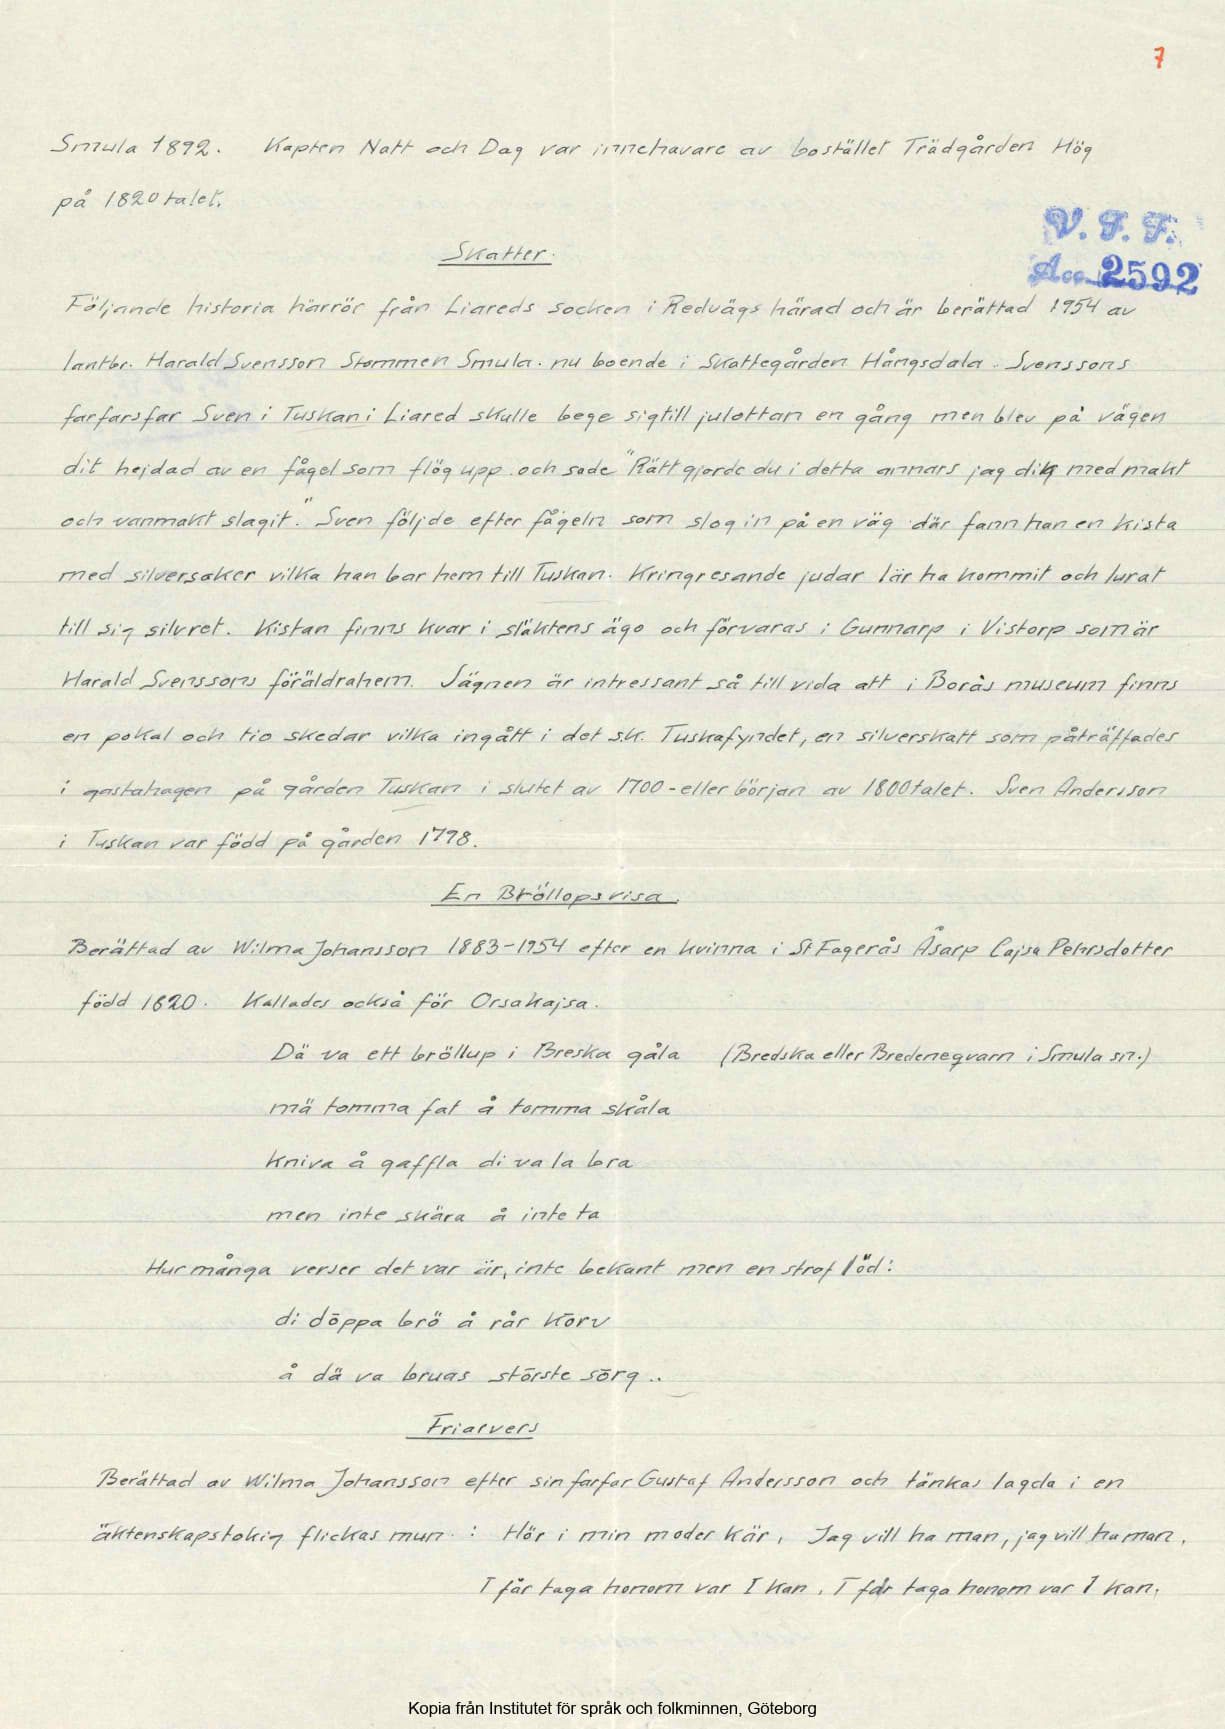 7
Smula 1892. Kapten Natt och Dag var innehavare av bostället Trädgården Hög
på 1820talet.
V. F. F.
Skatter.
Acc. 2592
Följande historia härrör från Liareds socken i Redvägs härad och är berättad 1954 av
lantbr. Harald Svensson Stommen Smula. nu boende i Skattegården Hångsdala. Svenssons
farfarsfar Sven i Tuskan i Liared skulle bege sigtill julottan en gång men blev på vägen
dit hejdad av en fågel som flög upp och sade "Rätt gjorde du i detta annars jag dig med makt
och vanmakt slagit." Sven följde efter fågeln som slog in på en väg där fann han en kista
med silversaker vilka han bar hem till Tuskan. Kringresande judar lär ha kommit och lurat
till sig silvret. Kistan finns kvar i släktens ägo och förvaras i Gunnarp i Vistorp som är
Harald Svenssons föräldrahem. Sägnen är intressant så till vida att i Borås museum finns
en pokal och tio skedar vilka ingått i det s.k. Tuskafyndet, en silverskatt som påträffades
i gastahagen på gården Tuskan i slutet av 1700-eller början av 1800talet. Sven Andersson
i Tuskan var född på gården 1798.
En Bröllopsvisa.
Berättad av Wilma Johansson 1883-1954 efter en kvinna i St Fagerås Åsarp Cajsa Pehrsdotter
född 1820. Kallades också för Orsakajsa.
Dä va ett bröllup i Breska gåla (Bredska eller Bredeneqvarn i Smula sn.)
mä tomma fat å tomma skåla
kniva å gaffla di va la bra
men inte skära å inte ta
Hur många verser det var är, inte bekant men en strof löd:
di döppa brö å rår körv
å dä va bruas störste sörg..
Friarvers
Berättad av Wilma Johansson efter sin farfar Gustaf Andersson och tänkas lagda i en
äktenskapstokig flickas mun. : Hör i min moder kär, Jag vill ha man, jag vill ha man,
I får taga honom var I kan, I får taga honom var I kan,
Kopia från Institutet för språk och folkminnen, Göteborg